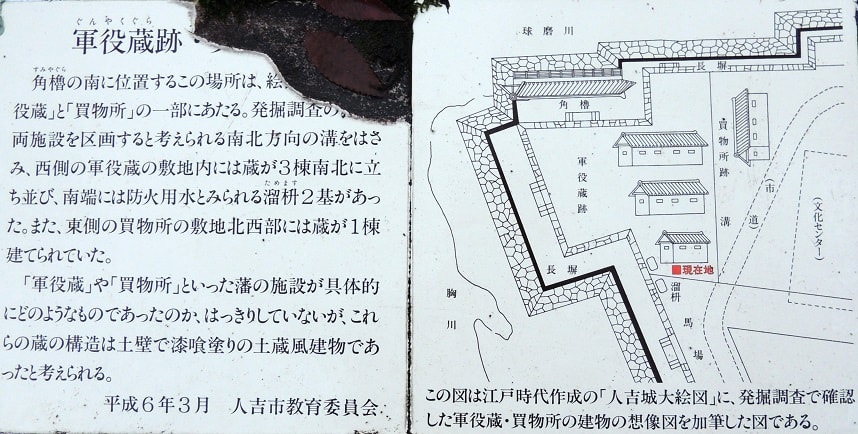 ぐんやくぐら
軍役蔵跡・
すみやぐら
角櫓の南に位置するこの場所は、絵
役蔵」と「買物所」の一部にあたる。発掘調査の
両施設を区画すると考えられる南北方向の溝をはさ
み、西側の軍役蔵の敷地内には蔵が3棟南北に立
ためます
ち並び、南端には防火用水とみられる溜枡2基があっ
た。また、東側の買物所の敷地北西部には蔵が1棟
建てられていた。
「軍役蔵」や「買物所」といった藩の施設が具体的
にどのようなものであったのか、はっきりしていないが、これ
らの蔵の構造は土壁で漆喰塗りの土蔵風建物であ
ったと考えられる。
平成6年3月 人吉市教育委員会
球磨川
長塀
角櫓
買物所跡
軍役蔵跡
溝
(市道)
(文化センター)
長塀
■現在地
溜枡
胸川
馬場
この図は江戸時代作成の「人吉城大絵図」に、発掘調査で確認
した軍役蔵・買物所の建物の想像図を加筆した図である。